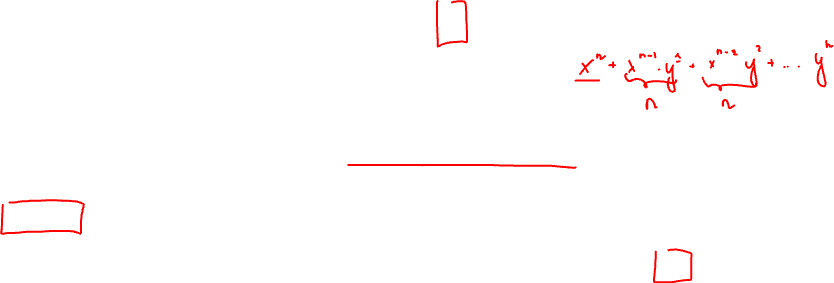 xⁿ + xⁿ⁻¹ · y¹ + xⁿ⁻² y² + ... yⁿ
n n